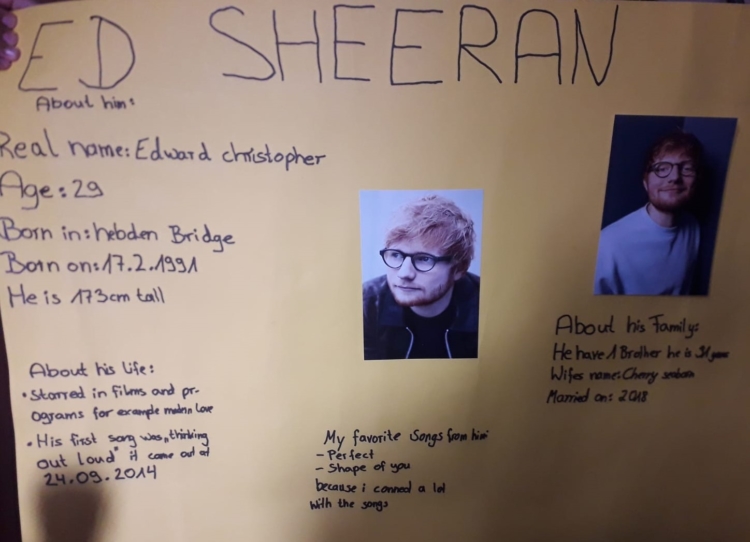 ED SHEERAN
About him:
Real name: Edward christopher
Age: 29
Born in: hebden Bridge
Born on: 17.2.1991
He is 173cm tall
About his life:
• Starred in films and pr-
ograms for example love
• His first song was „thinking
out loud" it come out at
24.09.2014
My favorite Songs from him
- Perfect
- Shape of you
because i conned a lot
with the songs
About his Family:
He have 1 Brother he is
Wifes name: Cherry
Married on: 2018